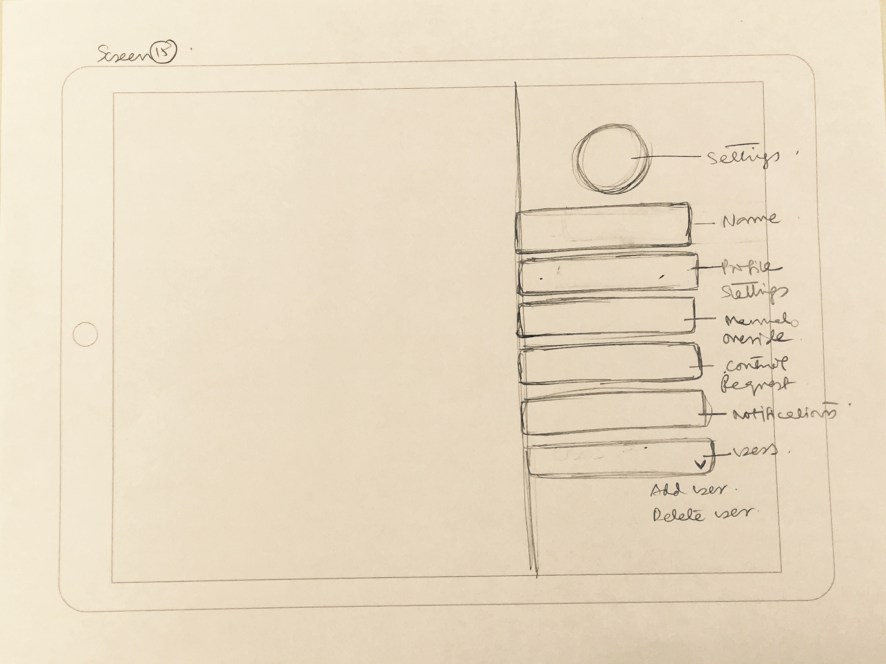 Screen 15
Settings
Name
Profile
Settings
Manual
override
Control
Request
Notifications
Users
Add user
Delete user